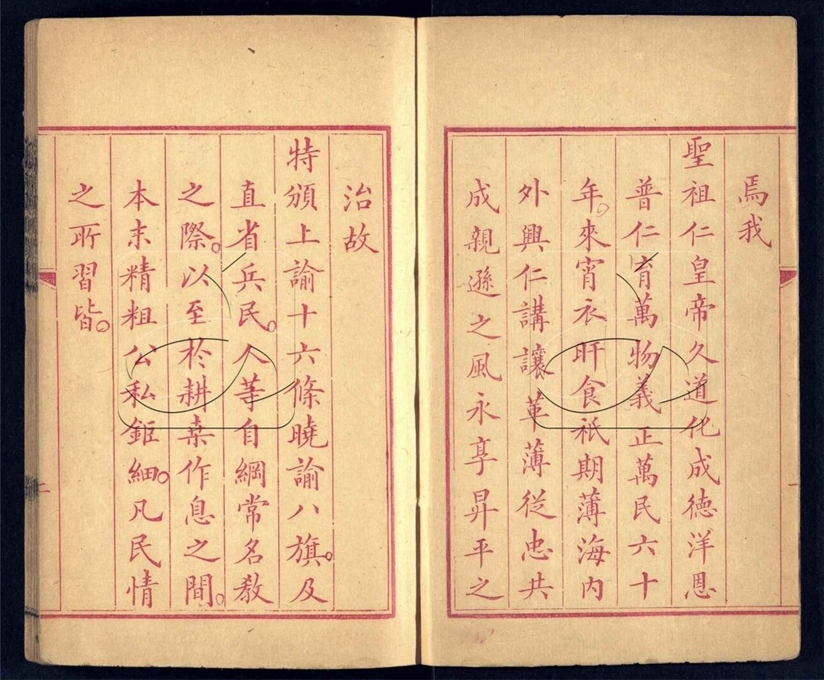 焉我
聖祖仁皇帝久道化成德洋恩
普仁育萬物義正萬民六十
年。來宵衣旰食祇期薄海內
外興仁講讓革薄從忠共
成親遜之風永享昇平之
治故
特頒上諭十六條曉諭八旗。及
直省兵民。人等自綱常名教
之際。以至於耕桒作息之間。
本末精粗公私鉅細。凡民情
之所習皆。